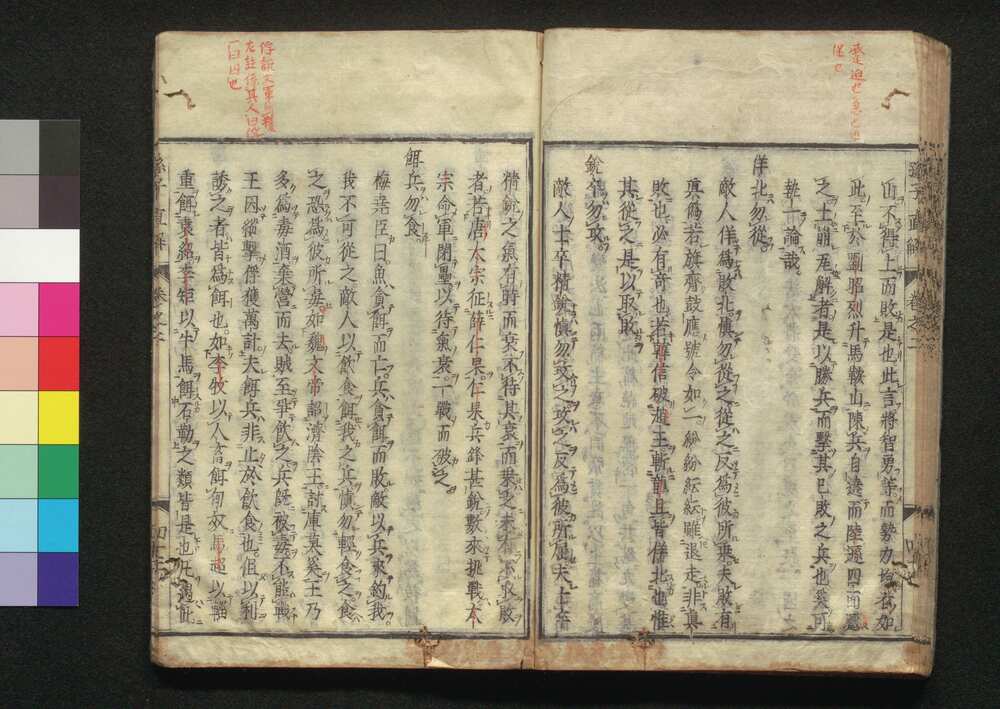 山不得上而敗是也此言將智勇等而勢力均者如
此至於劉昭烈升馬鞍山陳兵自遶而陸遜四面蹙
之土崩瓦解者是以勝兵而擊其已敗之兵也奚可
執一論哉
佯北勿從
敵人佯爲敗北愼勿從之從之反爲彼所乗夫敗有
眞僞若旗齊鼓應號令如一紛紛紜紜雖退走非眞
敗也必有竒也若韓信破趙王斬龍且皆佯北也惟
其從之是以取敗
銳卒勿攻
敵人士卒精銳愼勿攻之攻之反爲彼所屈夫上等
精銳之氣有時而衰不待其衰而乗之未有不取敗
者若唐太宗征薛仁杲仁杲兵鋒甚銳數來挑戰太
宗命軍閉壘以待氣衰一戰而破之
餌兵勿食
梅堯臣曰魚貪餌而亡兵食餌而敗敵以兵來釣我
我不可從之敵人以飮食餌我之兵愼勿輕食之食
之恐爲彼所毒如魏文帝詔濟陰王討庫莫奚王乃
多爲毒酒棄營而去賊至爭飮之兵旣被毒不能戰
王因縱擊俘獲萬計夫餌兵非止於飮食也但以利
誘之者皆爲餌也如李牧以人畜餌匈奴馬超以詣
重餌袁紹李矩以牛馬餌石勒之類皆是也
孫子直解
俘說文軍所獲
左註俘其人曰俘
一曰囚也
蹙迫也